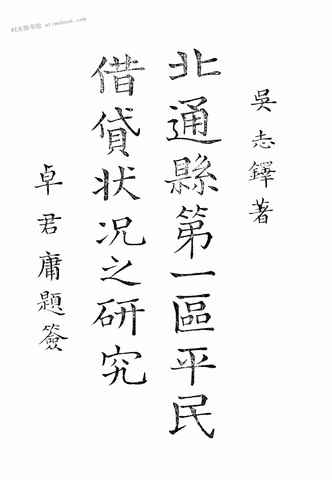 吳志鐸著
北通縣第一區平民
借貸状况之研究
卓君庸題簽